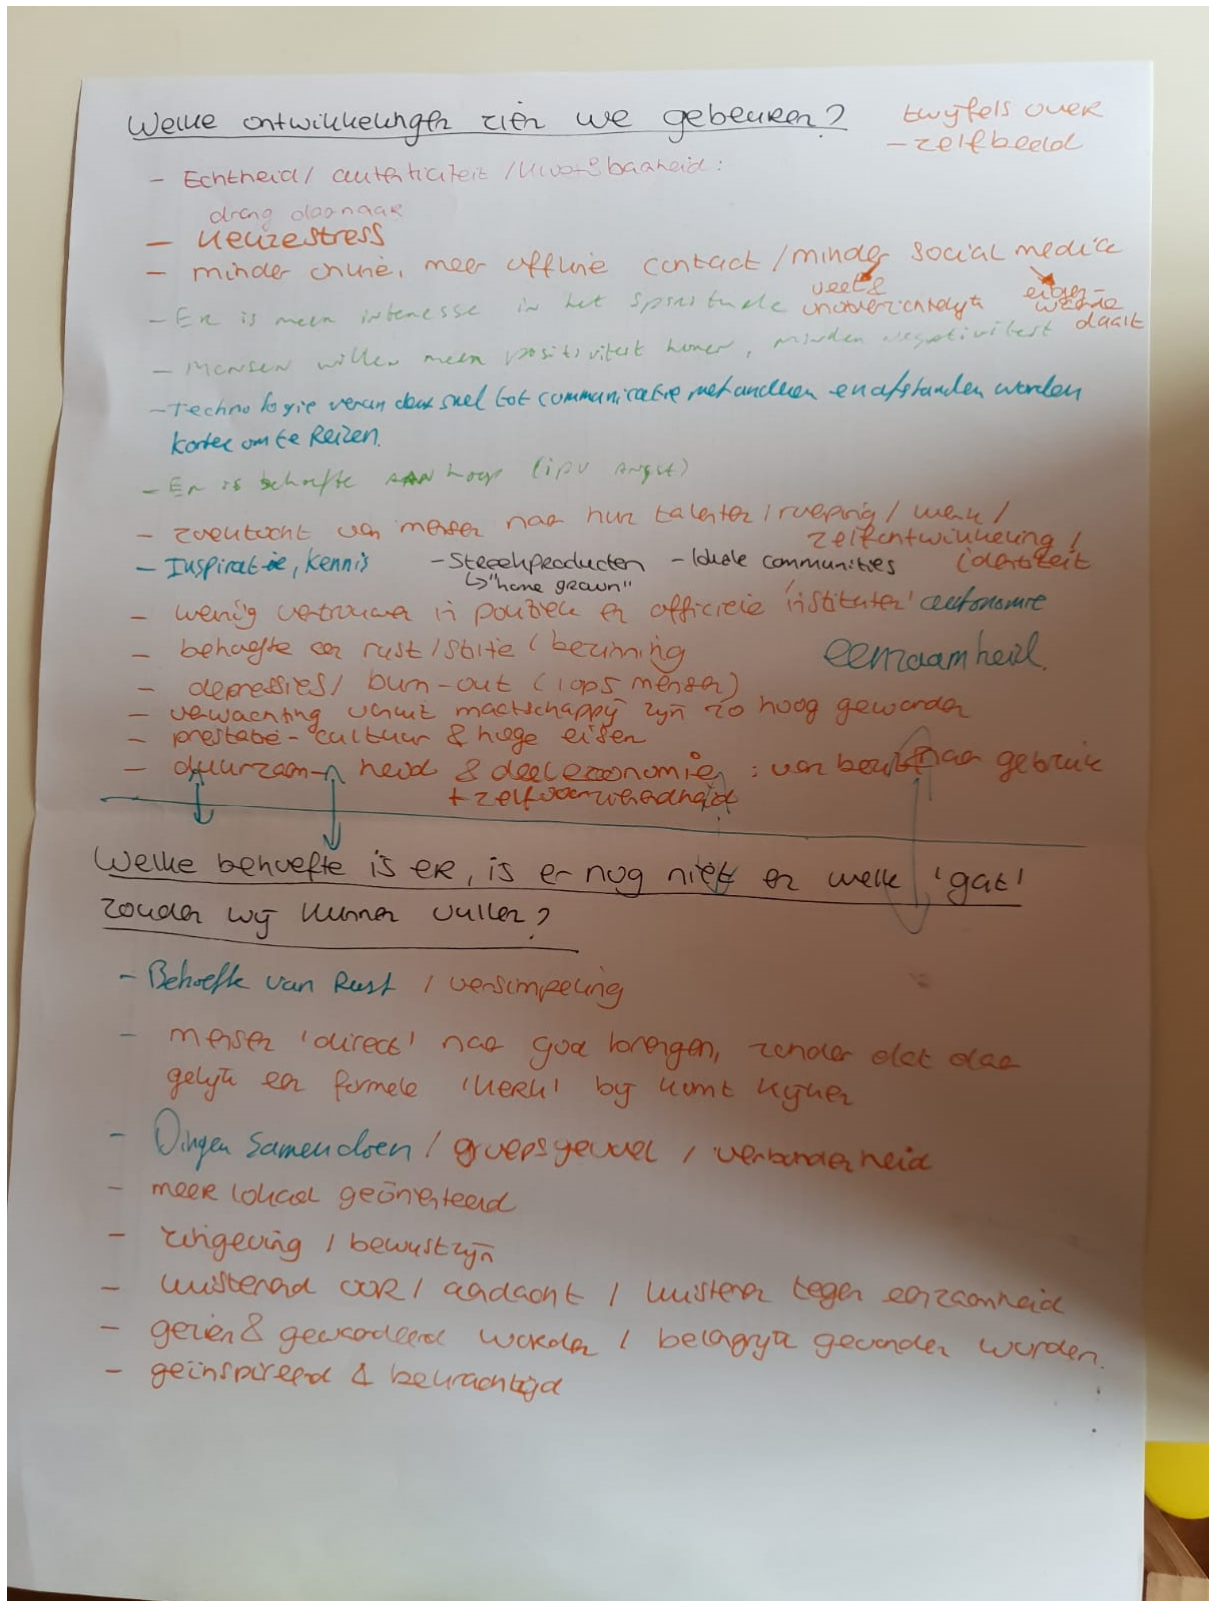 Welke ontwikkelingen zien we gebeuren?
twijfels over
- zelfbeeld
- Echtheid / authenticiteit / kwetsbaarheid:
drang daarnaar
- keuzestress
- minder online, meer offline contact / minder social media
veel &
onoverzichtelijk
eigen-
waarde
daalt
- Er is meer interesse in het spirituele
- Mensen willen meer positiviteit horen, minder negativiteit
- Technologie verandert snel tot communicatie met anderen en afstanden worden
korter om te Reizen.
- Er is behoefte AAN hoop (ipv angst)
- zoektocht van mensen naar hun talenten / roeping / werk /
zelfontwikkeling /
identiteit
- Inspiratie, kennis - Streekproducten - lokale communities
↳ "home grown"
- weinig vertrouwen in politiek en officiële 'instituten' autonomie
- behoefte aan rust / stilte / bezinning
eenzaamheid.
- depressies / burn-out (1 op 5 mensen)
- verwachting vanuit maatschappij zijn zo hoog geworden
- prestatie-cultuur & hoge eisen
- duurzaam-heid & deeleconomie: van bezit naar gebruik
+ zelfvoorzienendheid
Welke behoefte is ER, is er nog niet en welk 'gat'
zouden wij kunnen vullen?
- Behoefte van Rust / versimpeling
- mensen 'direct' naar god brengen, zonder dat daar
gelijk een formele 'KERK' bij komt kijken
- Dingen Samen doen / groepsgevoel / verbondenheid
- meer lokaal georiënteerd
- zingeving / bewustzijn
- luisterend OOR / aandacht / luisteren tegen eenzaamheid
- gezien & gewaardeerd worden / belangrijk gevonden worden.
- geïnspireerd & bekrachtigd